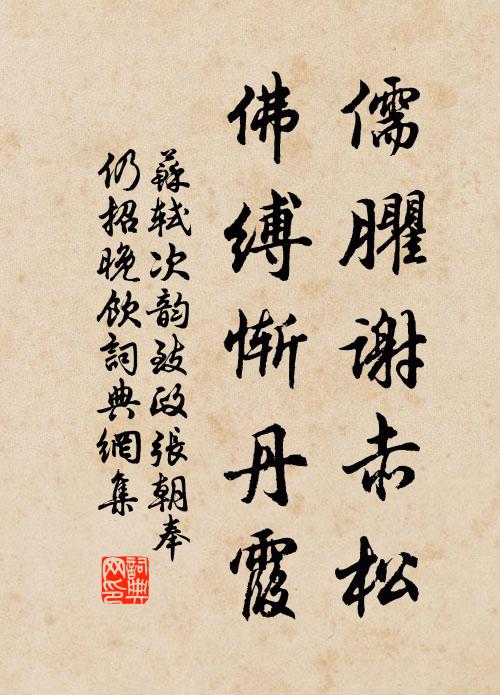 儒臞謝赤松
佛縛慚丹霞
蘇軾次韵致政張朝奉
仍招晚飲詞典網集
詞典
网印